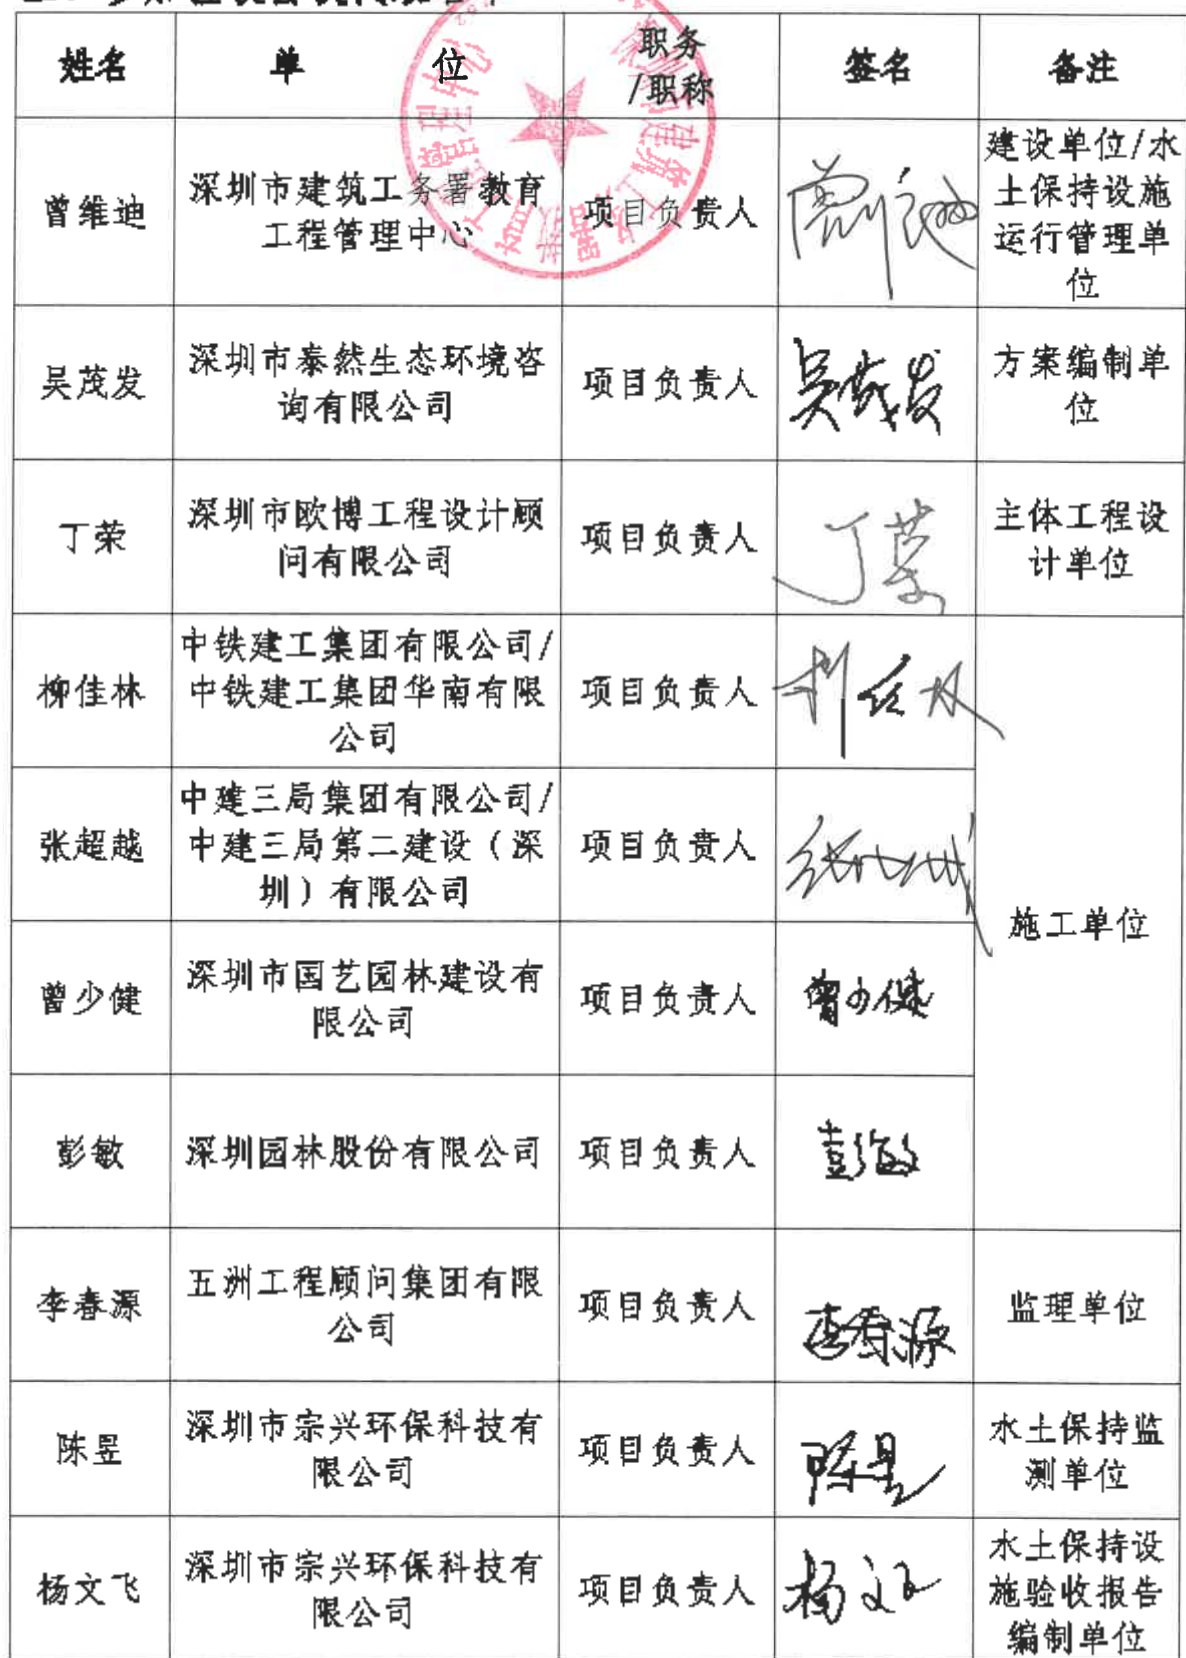 姓名 单 位 职务
/职称 签名 备注
曾维迪 深圳市建筑工务署教育
工程管理中心 项目负责人 建设单位/水
土保持设施
运行管理单
位
吴茂发 深圳市泰然生态环境咨
询有限公司 项目负责人 吴茂发 方案编制单
位
丁荣 深圳市欧博工程设计顾
问有限公司 项目负责人 丁荣 主体工程设
计单位
柳佳林 中铁建工集团有限公司/
中铁建工集团华南有限
公司 项目负责人
张超越 中建三局集团有限公司/
中建三局第二建设（深
圳）有限公司 项目负责人
施工单位
曾少健 深圳市国艺园林建设有
限公司 项目负责人 曾少健
彭敏 深圳园林股份有限公司 项目负责人 彭敏
李春源 五洲工程顾问集团有限
公司 项目负责人 李春源 监理单位
陈昱 深圳市宗兴环保科技有
限公司 项目负责人 陈昱 水土保持监
测单位
杨文飞 深圳市宗兴环保科技有
限公司 项目负责人 杨文飞 水土保持设
施验收报告
编制单位